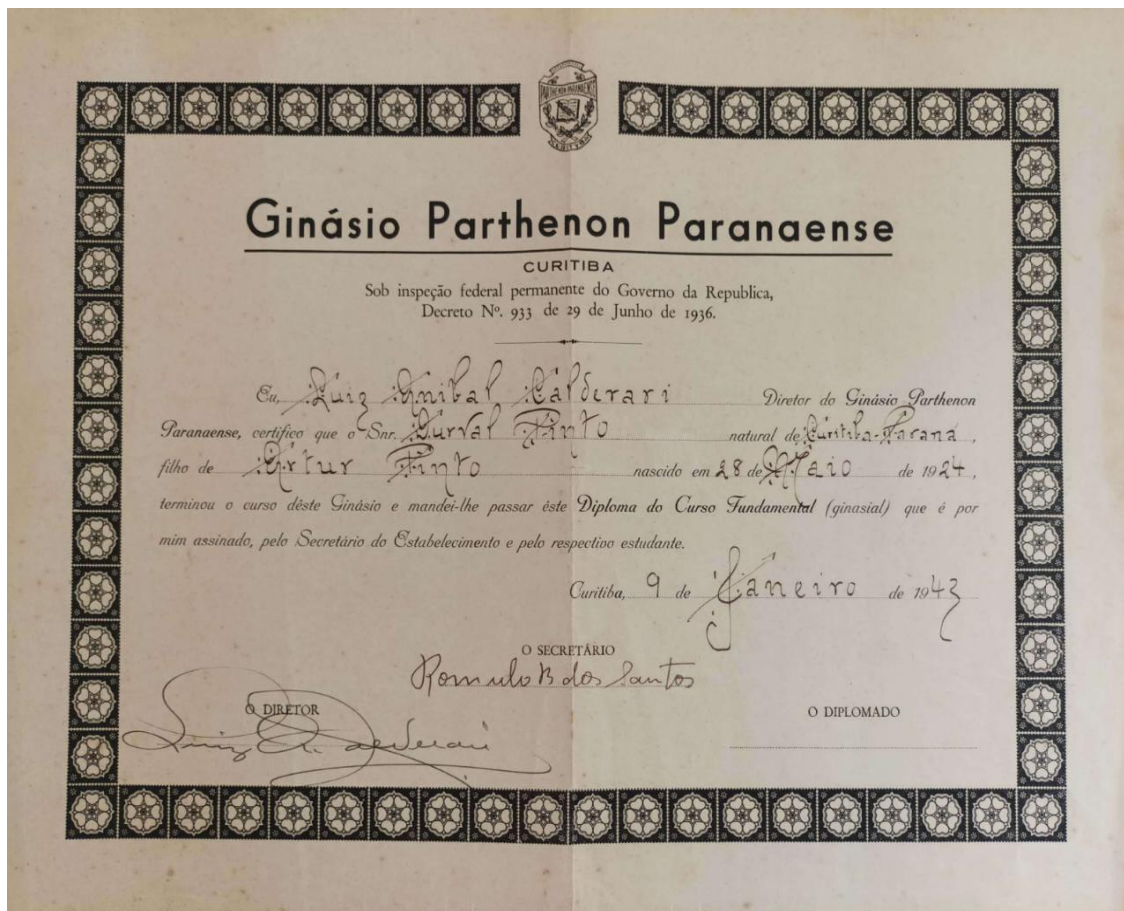 PARTHENON PARANAENSE
CURITYBA
Ginásio Parthenon Paranaense
CURITIBA
Sob inspeção federal permanente do Governo da Republica,
Decreto Nº. 933 de 29 de Junho de 1936.
Eu, Luiz Anibal Calderari Diretor do Ginásio Parthenon
Paranaense, certifico que o Snr. Durval Pinto natural de Curitiba-Paraná,
filho de Artur Pinto nascido em 28 de Maio de 1924,
terminou o curso dêste Ginásio e mandei-lhe passar êste Diploma do Curso Fundamental (ginasial) que é por
mim assinado, pelo Secretário do Estabelecimento e pelo respectivo estudante.
Curitiba, 9 de Janeiro de 1943
O SECRETÁRIO
Romulo B dos Santos
O DIRETOR
Luiz A. Calderari
O DIPLOMADO